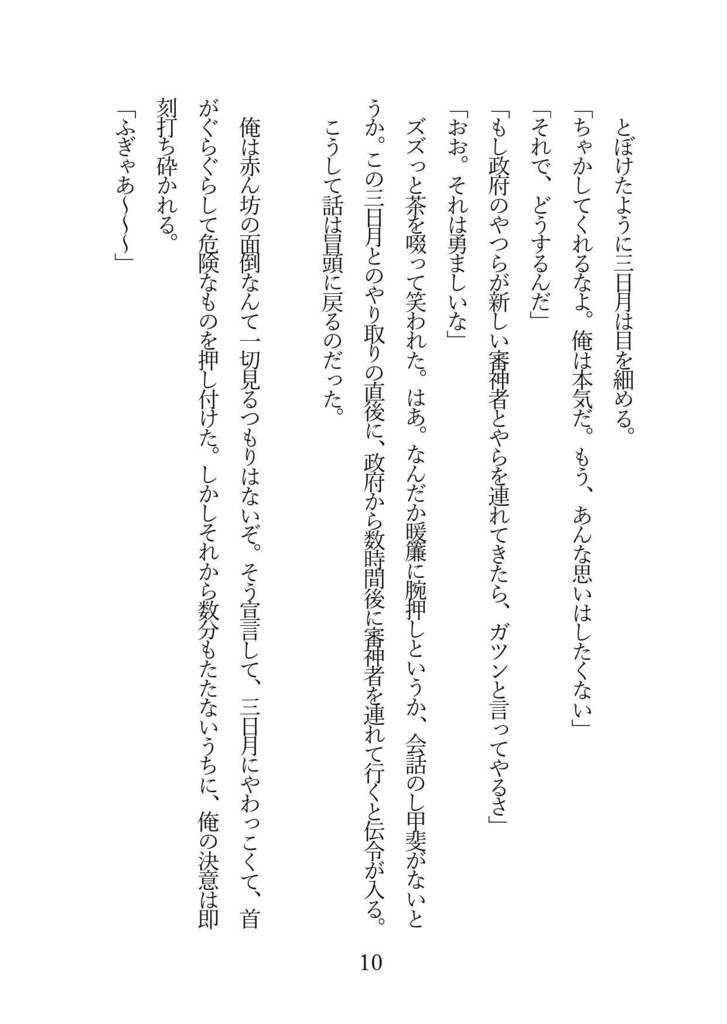 とぼけたように三日月は目を細める。
「ちゃかしてくれるなよ。俺は本気だ。もう、あんな思いはしたくない」
「それで、どうするんだ」
「もし政府のやつらが新しい審神者とやらを連れてきたら、ガツンと言ってやるさ」
「おお。それは勇ましいな」
ズズっと茶を啜って笑われた。はあ。なんだか暖簾に腕押しというか、会話のし甲斐がないと
うか。この三日月とのやり取りの直後に、政府から数時間後に審神者を連れて行くと伝令が入る。
こうして話は冒頭に戻るのだった。
俺は赤ん坊の面倒なんて一切見るつもりはないぞ。そう宣言して、三日月にやわっこくて、首
がぐらぐらして危険なものを押し付けた。しかしそれから数分もたたないうちに、俺の決意は即
刻打ち砕かれる。
「ふぎゃあ～～～」
10